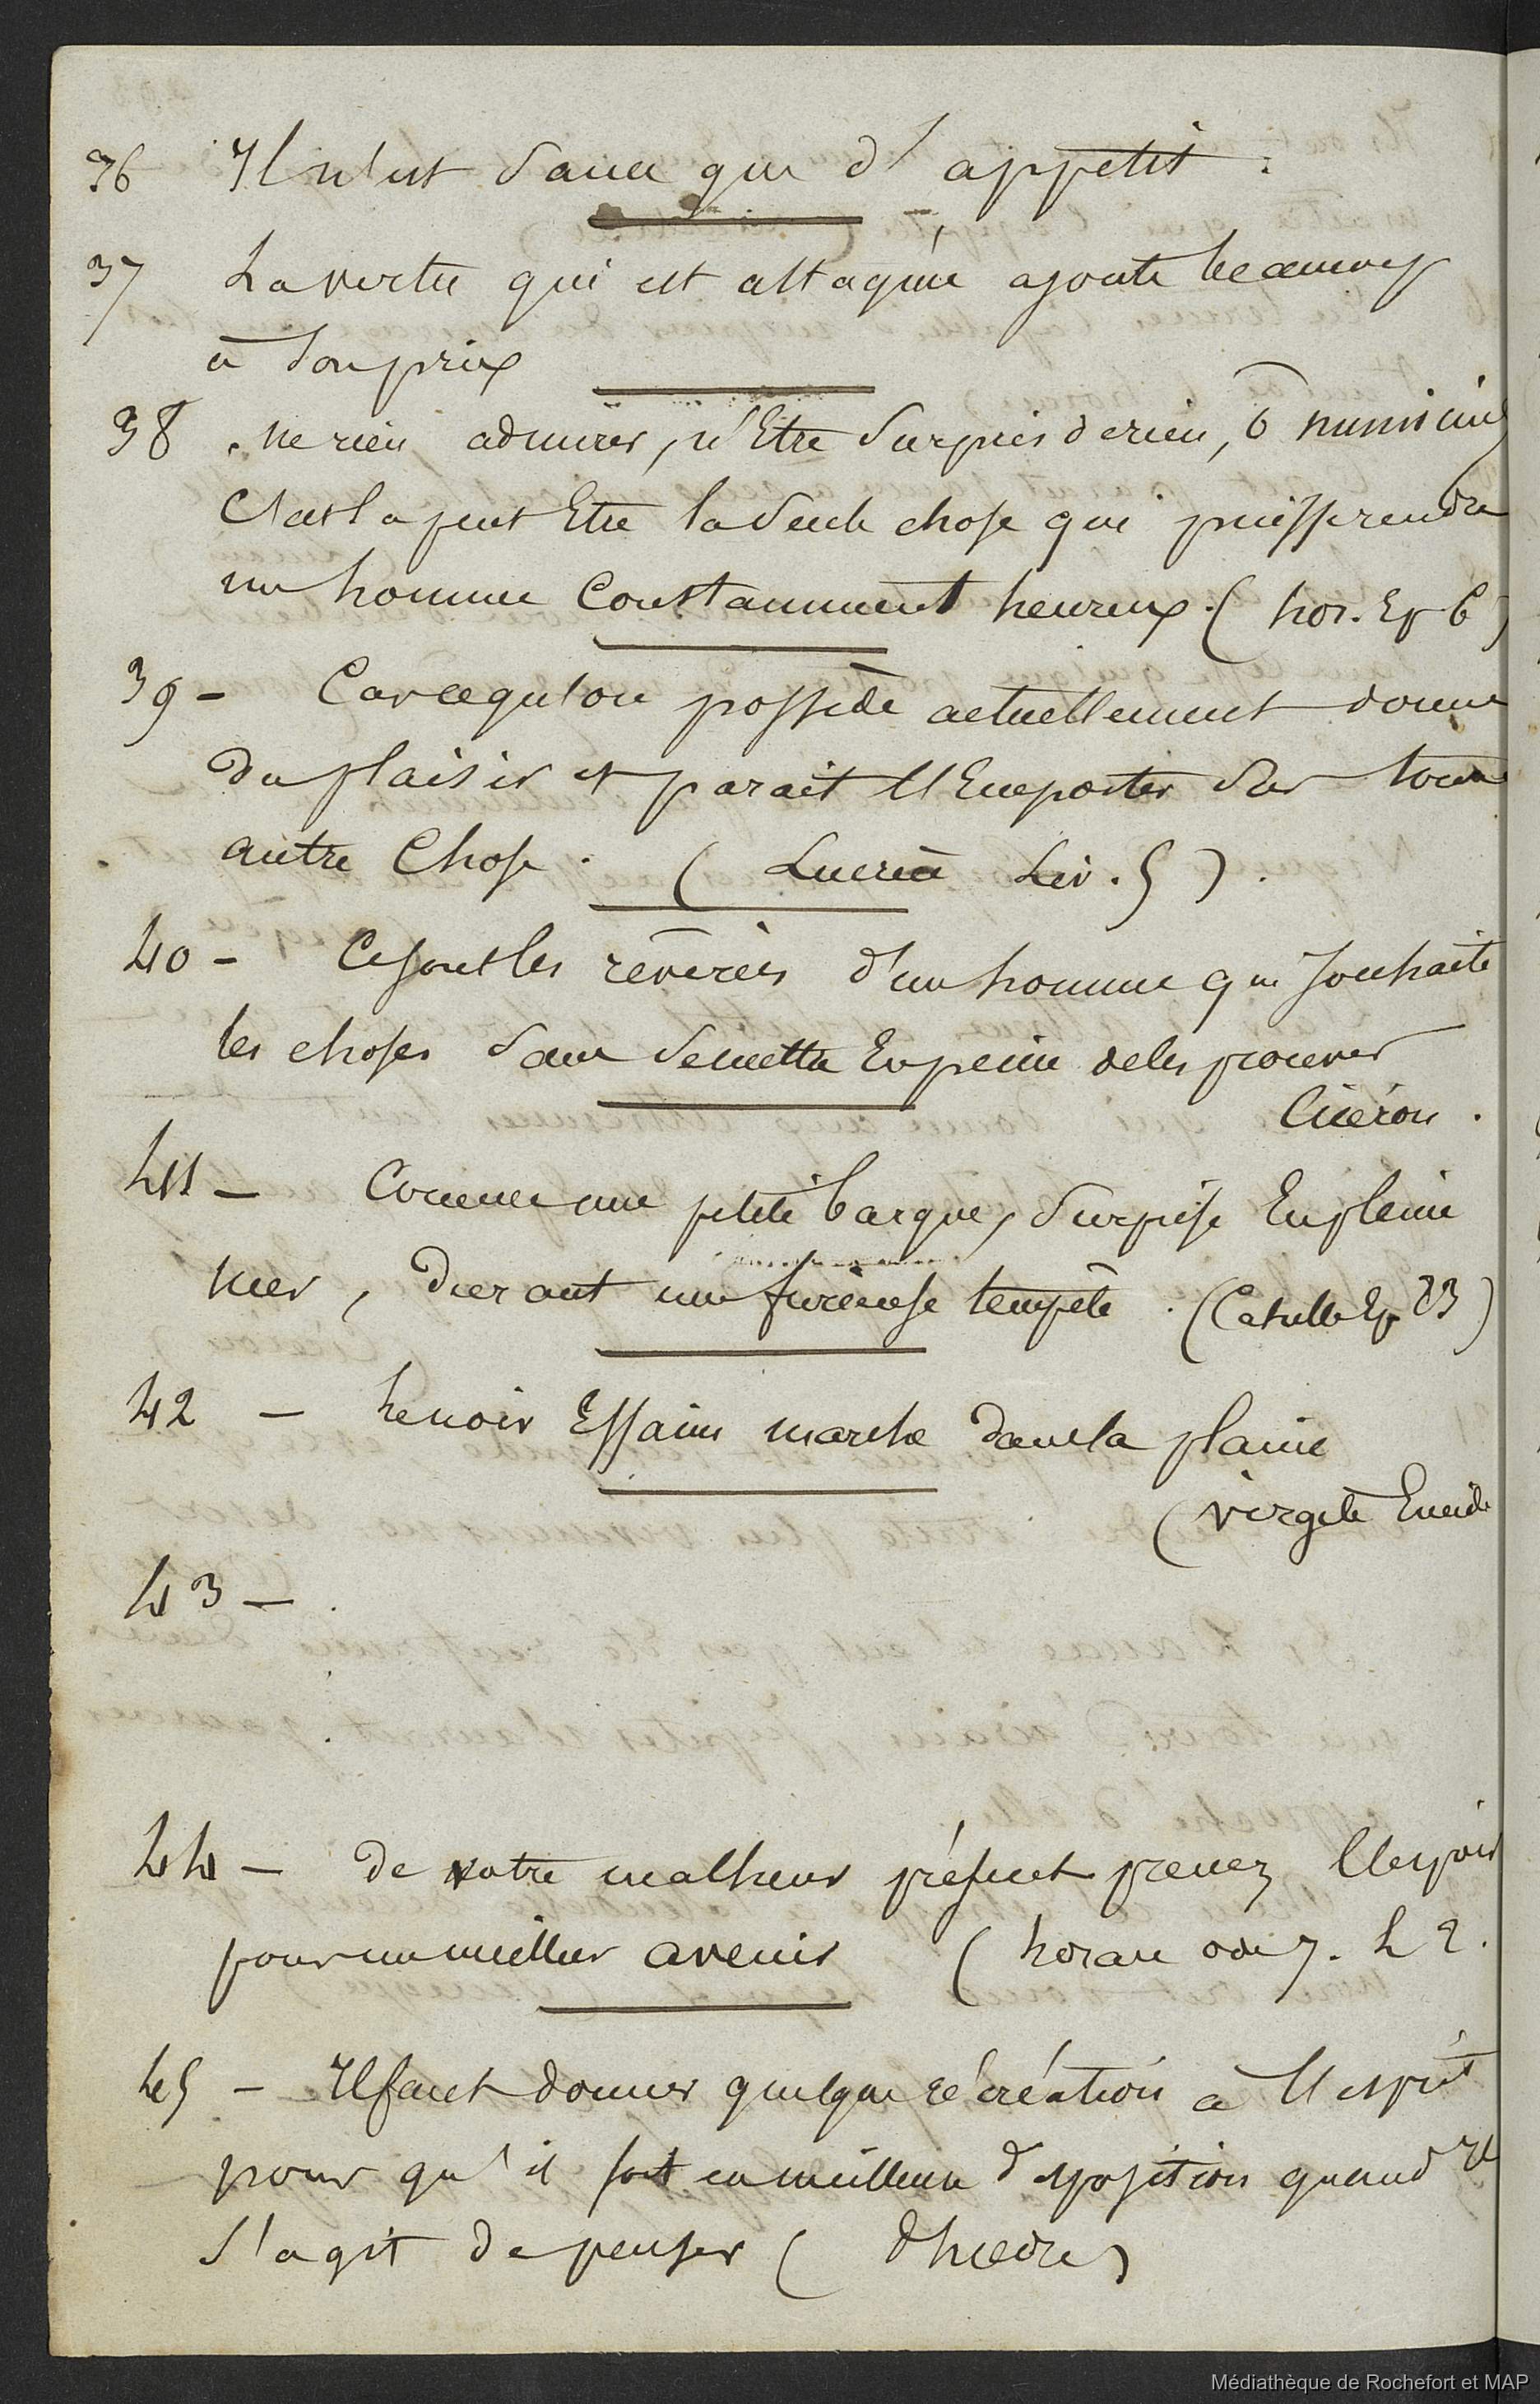 36 Il n'est sauce que d'appétit.
37 La vertu qui est attaquée ajoute beaucoup
à son prix
38 . ne rien admirer, n'Etre surpris de rien, ô numicius
C'est la peut Etre la seule chose qui puisse rendre
un homme Constamment heureux. (hor. Ep 6)
39 - Car ce qu'on possède actuellement donne
du plaisir et parait l'Emporter sur toute
autre Chose. (Lucrèce Liv. 5).
40 - Ce sont les rêveries d'un homme qui souhaite
les choses sans se mettre En peine de les prouver
Cicéron.
41 - Comme une petite barque, surprise En pleine
mer, durant une furieuse tempête. (Catulle Ep 23)
42 - Le noir Essaim marche dans la plaine
(virgile Eneide
43 - .
44 - de votre malheur présent prenez l'espoir
pour un meilleur avenir (horace ode 7. L 2.
45 - Il faut donner quelque récréation à l'esprit
pour qu'il soit en meilleure disposition quand Il
s'agit de penser (Phèdre)
Médiathèque de Rochefort et MAP